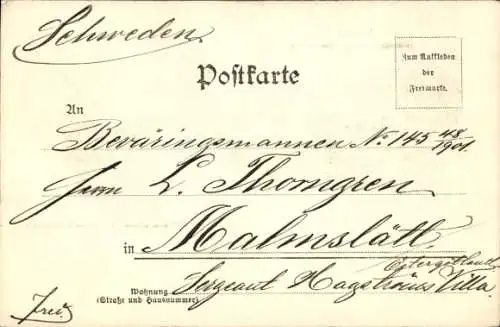 Schweden
Postkarte
Zum Aufkleben
der
Freimarke.
An
Beväringsmannen No. 145 48/1901.
Herrn L. Thorngren
in Malmslätt.
Östergötland
Wohnung Sergeant Hagströms Villa
(Straße und Hausnummer)
Frei